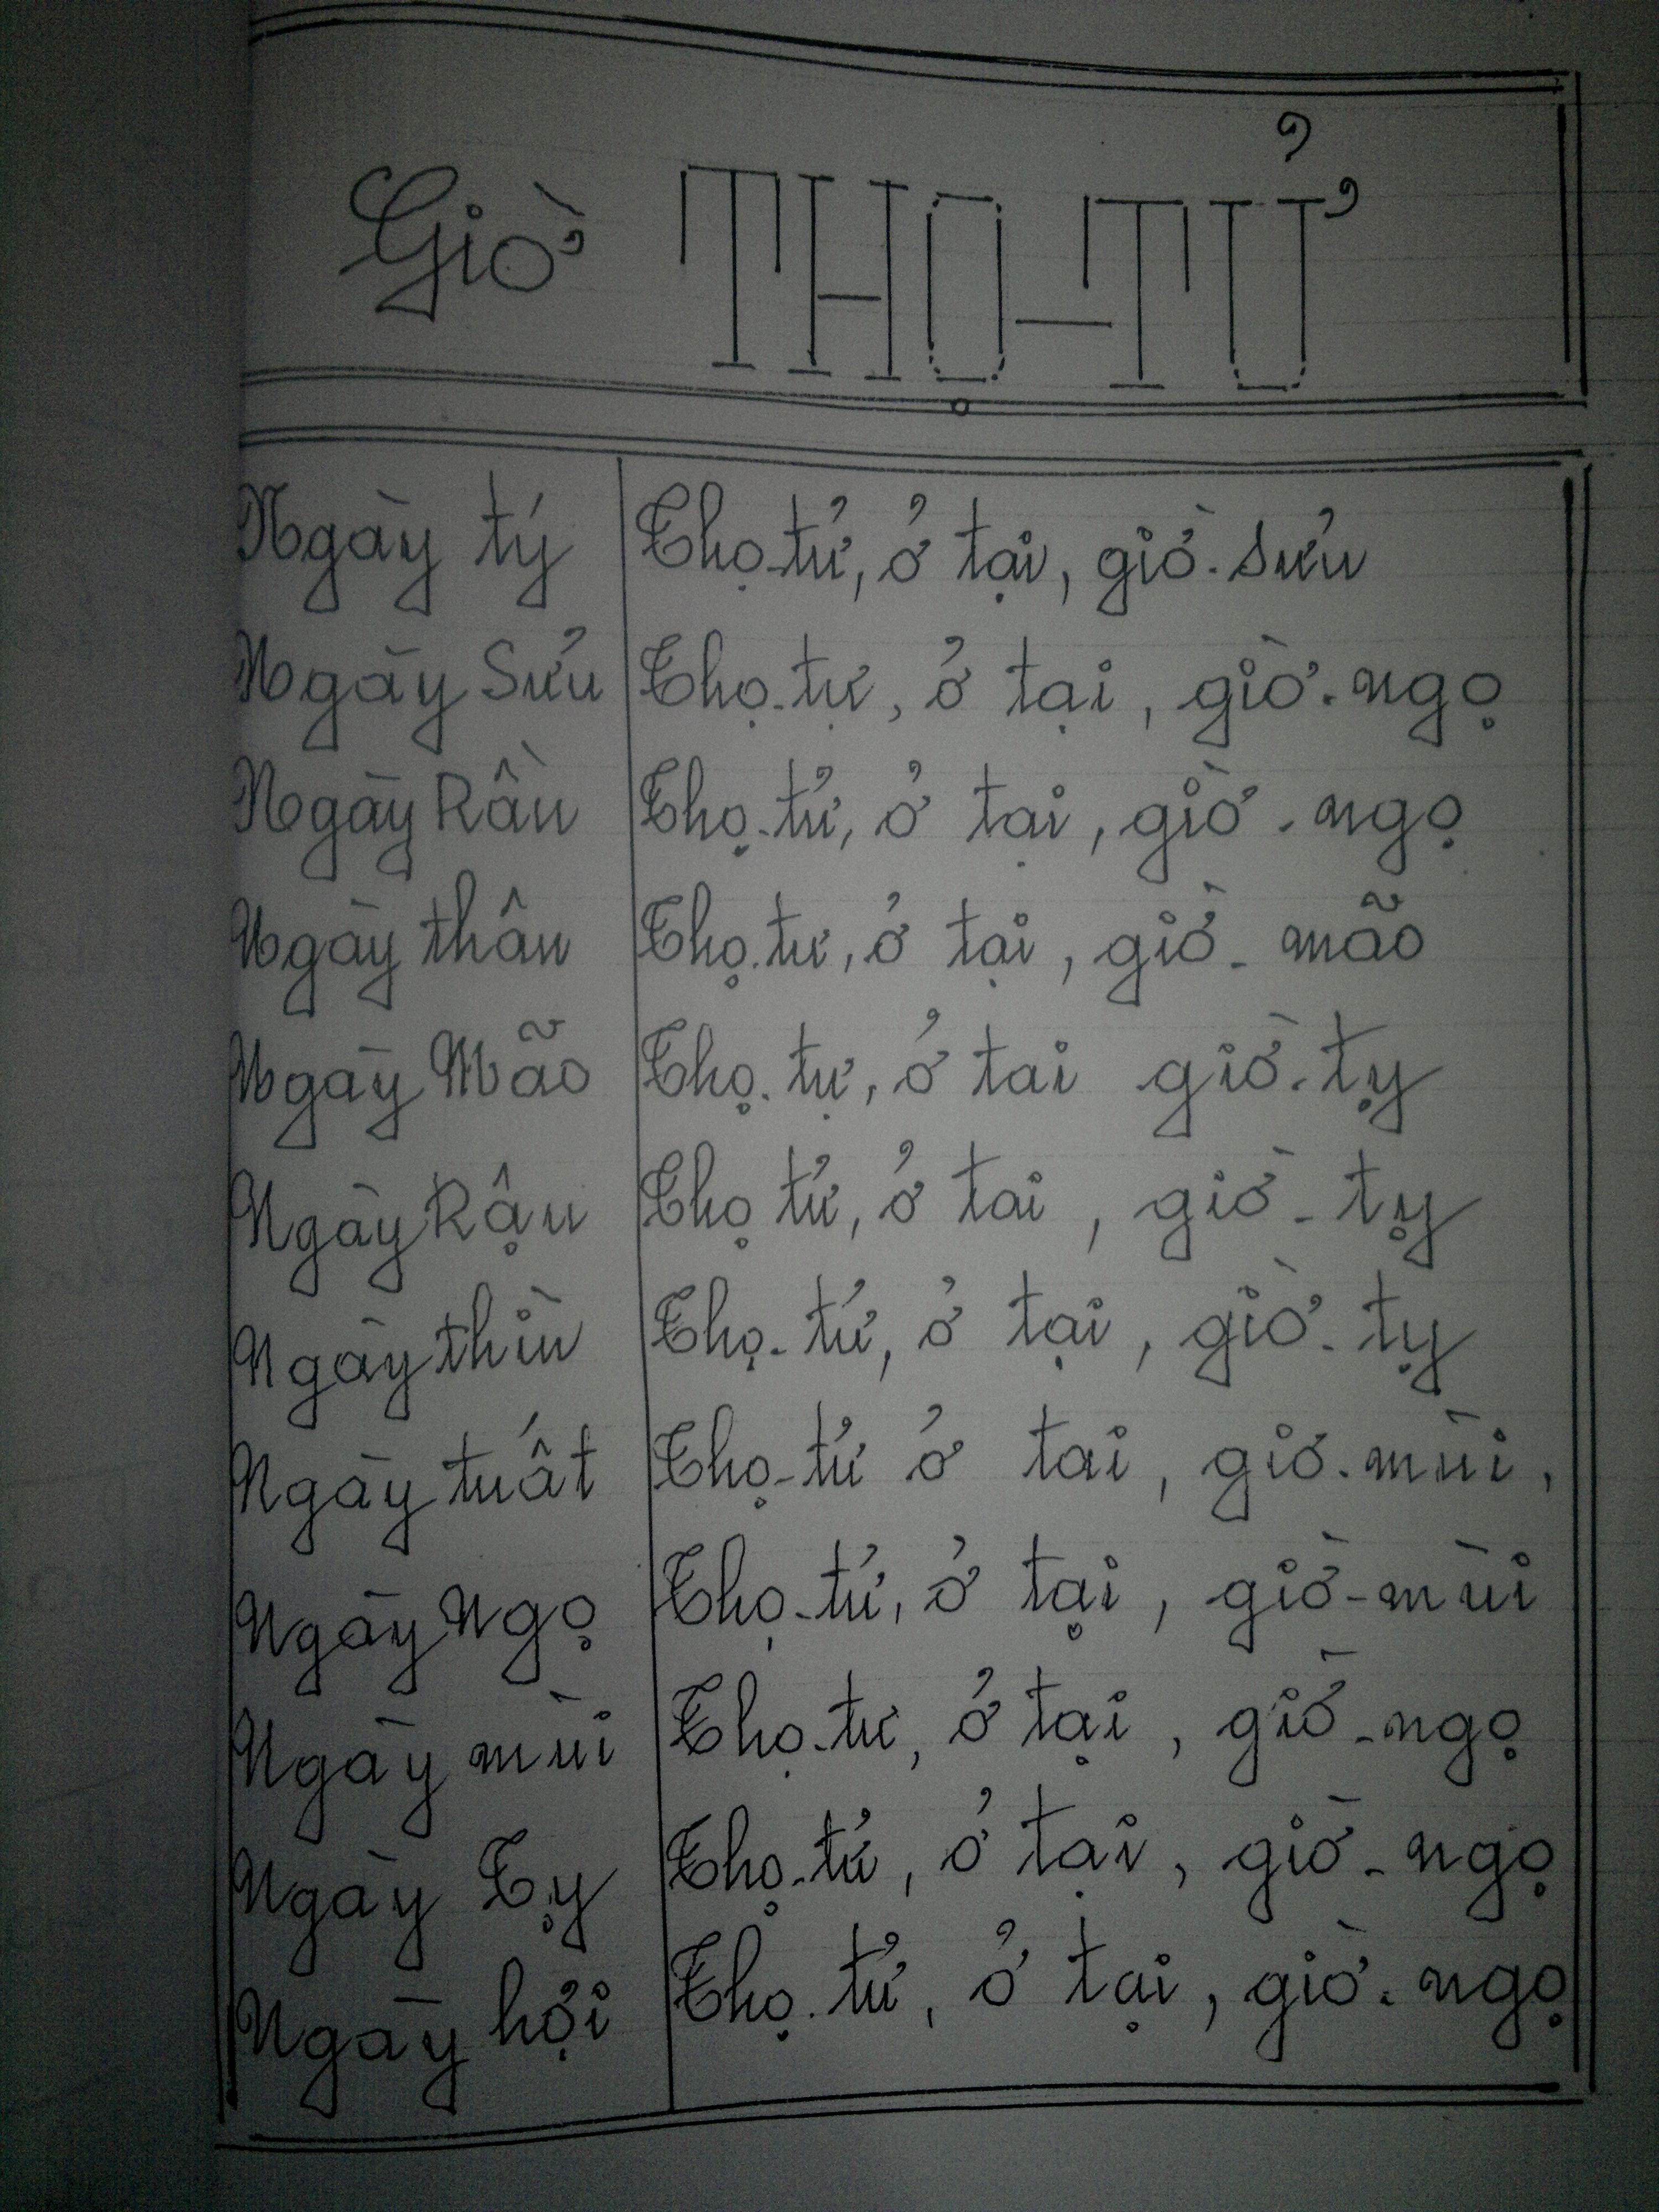 Giờ THỌ-TỬ
Ngày tý Thọ-tử, ở tại, giờ. sửu
Ngày Sửu Thọ-tự, ở tại, giờ. ngọ
Ngày Rần Thọ-tử, ở tại, giờ. ngọ
Ngày thân Thọ.tư, ở tại, giờ - mão
Ngày Mão Thọ. tự, ở tai giờ. tỵ
Ngày Rậu Thọ tử, ở tai, giờ - tỵ
Ngày thìn Thọ. tứ, ở tại, giờ. tỵ
Ngày tuất Thọ-tử ở tai, giờ. mùi,
Ngày Ngọ Thọ-tử, ở tại, giờ-mùi
Ngày mùi Thọ-tư, ở tại, giờ-ngọ
Ngày Tỵ Thọ-tử, ở tại, giờ - ngọ
Ngày hợi Thọ. tử, ở tại, giờ. ngọ